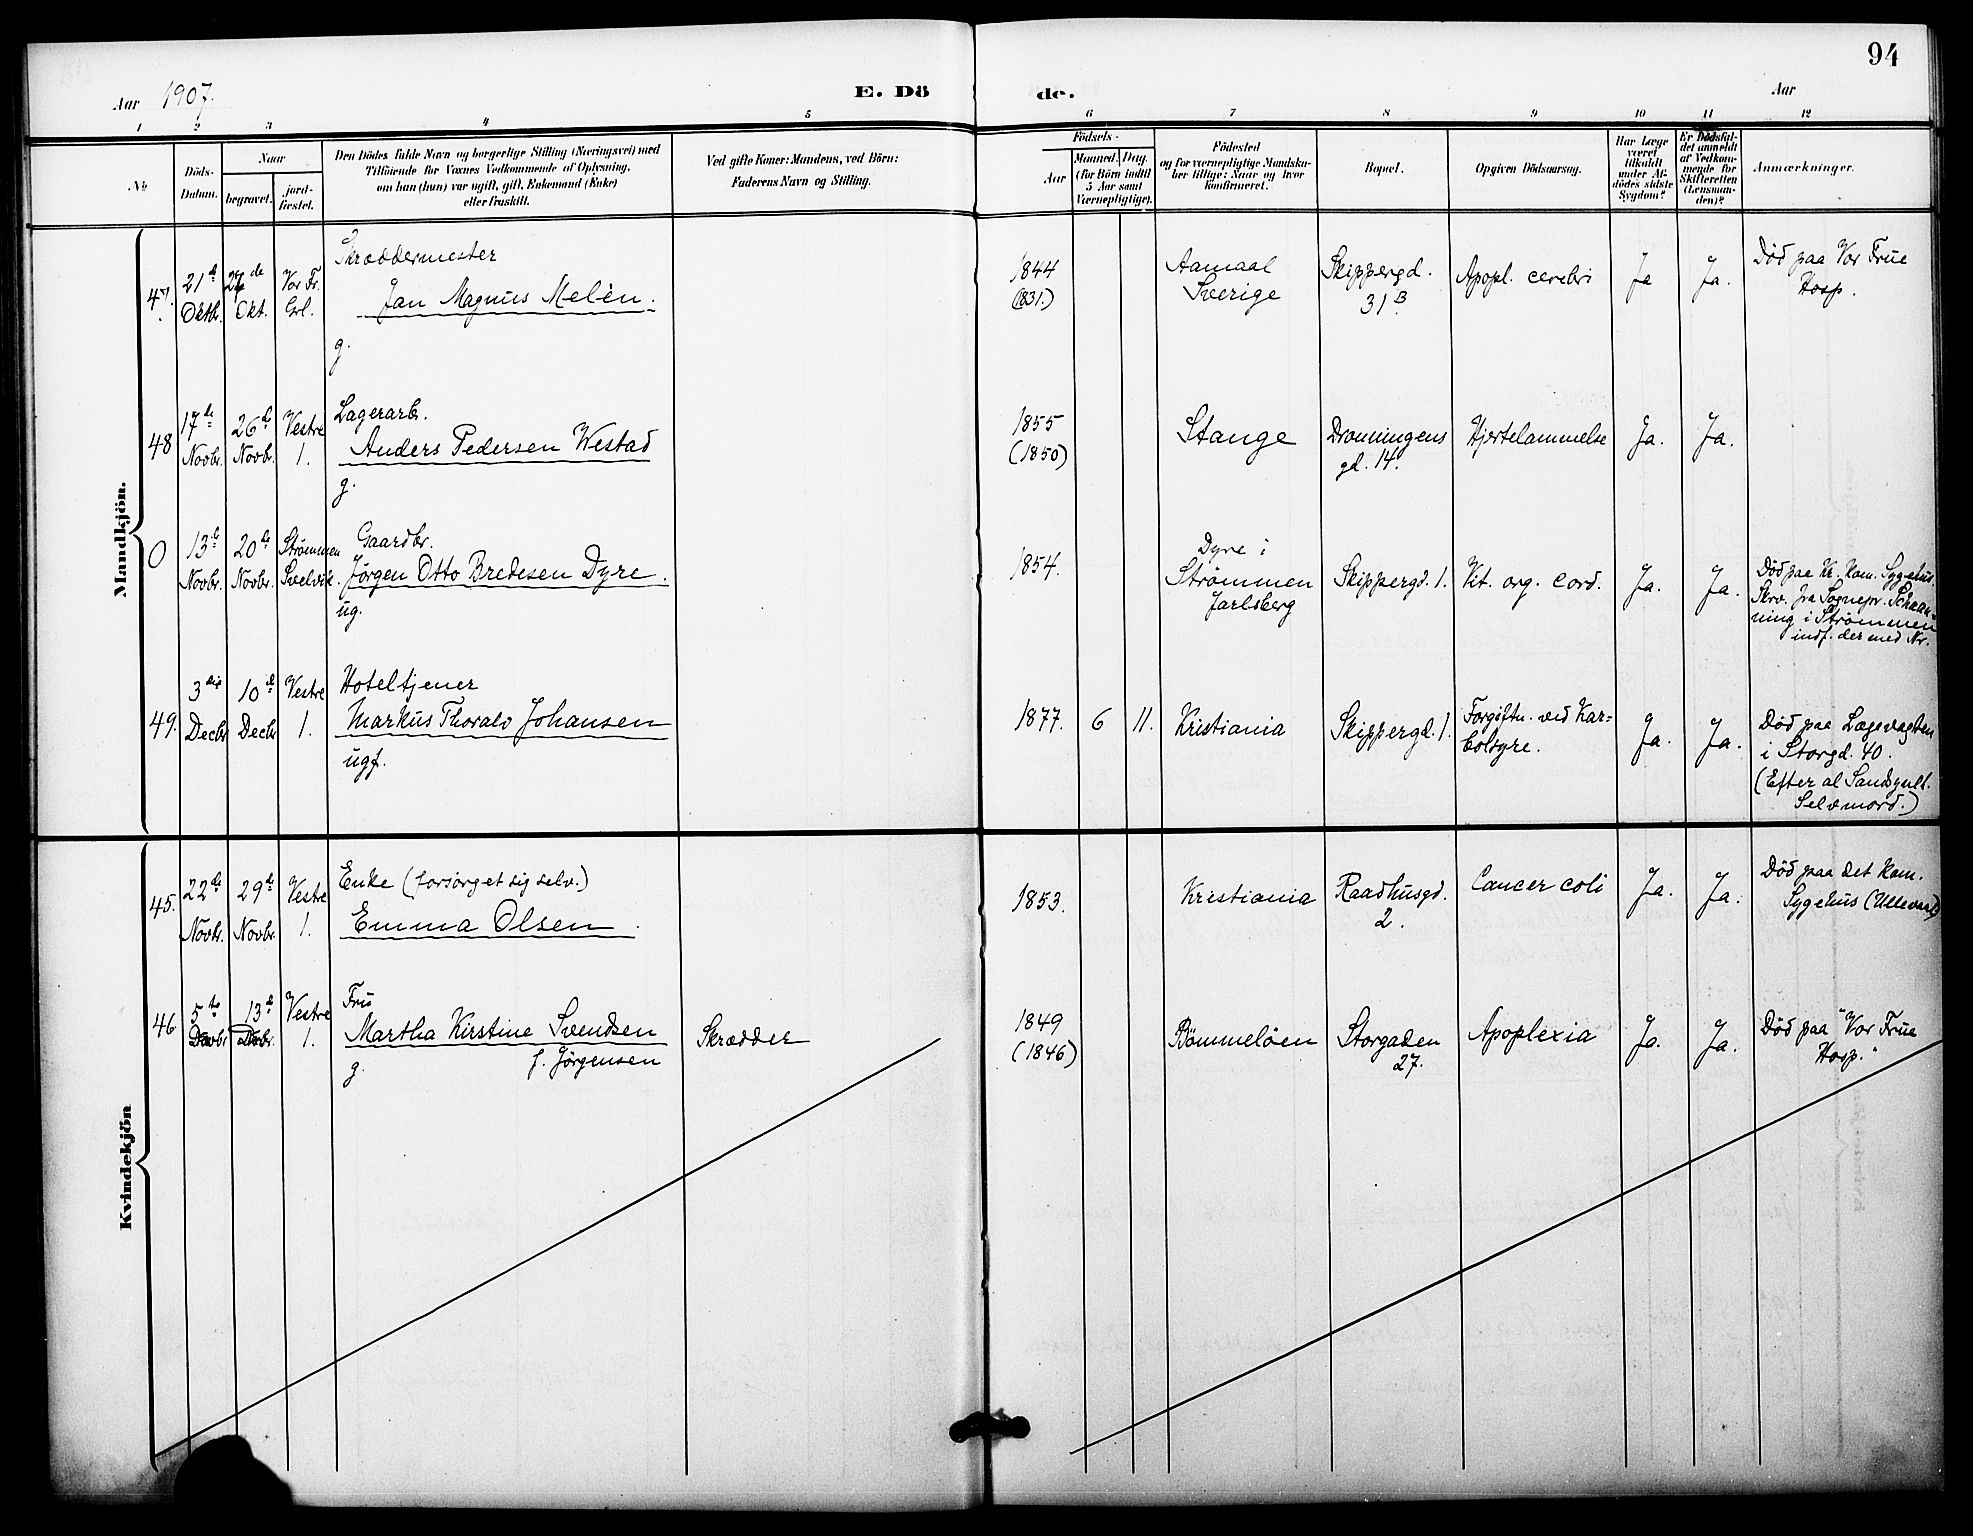 94
Aar 1907.
E. Dö
de.
Aar
1 2 3 4 5 6 7 8 9 10 11 12
No
Döds-
Datum.
Naar
begravet.
jord-
fæstet.
Den Dödes fulde Navn og borgerlige Stilling (Næringsvei) med
Tilföiende for Voxnes Vedkommende af Oplysning,
om han (hun) var ugift, gift, Enkemand (Enke)
eller fraskilt.
Ved gifte Koner: Mandens, ved Börn:
Faderens Navn og Stilling.
Födsels-
Aar
Maaned. Dag.
(for Börn indtil
5 Aar samt
Værnepligtige).
Födested
og for værnepligtige Mandska-
ber tillige: Naar og hvor
konfirmeret.
Bopæl.
Opgiven Dödsaarsag.
Har Læge
været
tilkaldt
under Af-
dödes sidste
Sygdom?
Er Dödsfal-
det anmeldt
af Vedkom-
mende for
Skifteretten
(Lensman-
den)?
Anmærkninger.
Mandkjön.
47.
21de
Oktbr.
de
Okt.
Vor Fr.
Grl.
Skræddermester
Jan Magnus Melèn.
g.
1844
(1831.)
Aamaal
Sverige
Skippergd.
31 B
Apopl. cerebri
Ja
Ja.
Död paa Vor Frue
Hosp.
48
17de
Novbr.
26de
Novbr.
Vestre
1.
Lagerarb.
Anders Pedersen Westad
g.
1855
(1850)
Stange
Dronningens
gd. 14.
Hjertelammelse
Ja.
Ja.
0
13de
Novbr.
20de
Novbr.
Strömmen
Svelvik.
Gaardbr.
Jörgen Otto Bredesen Dyre.
ug.
1854.
Dyre i
Strömmen
Jarlsberg
Skippergd. 1.
Vit. org. cord.
Ja.
Ja.
Död paa Kr. Kom. Sygehus.
Skrv. fra Sognepr. Schaan-
ning i Strömmen
indf. der med Nr.
49.
3die
Decbr
10de
Decbr
Vestre
1.
Hoteltjener
Markus Thoralv Johansen
ugf.
1877. 6 11.
Kristiania
Skippergd. 1.
Forgiftn. ved Kar-
bolsyre.
Ja.
Ja.
Död paa Lægevagten
i Storgd. 40.
(Efter al Sandsynl.
Selvmord.)
Kvindekjön
45.
22de
Novbr.
29de
Novbr.
Vestre
1.
Enke (forsörget sig selv.)
Emma Olsen.
1853.
Kristiania
Raadhusgd.
2.
Cancer coli
Ja.
Ja.
Död paa det kom.
Sygehus (Ullevaal)
46
5te
13de
Vestre
1.
Fru
Martha Kirstine Svendsen
g. f. Jörgensen
Skrædder
1849
(1846)
Bömmelöen
Storgaden
27.
Apoplexia
Ja.
Ja.
Död paa "Vor Frue
Hosp."